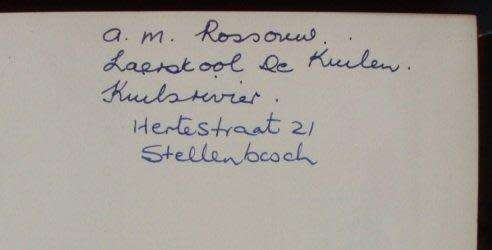 A. M. Rossouw.
Laerskool De Kuilen.
Kuilsrivier.
Hertestraat 21
Stellenbosch